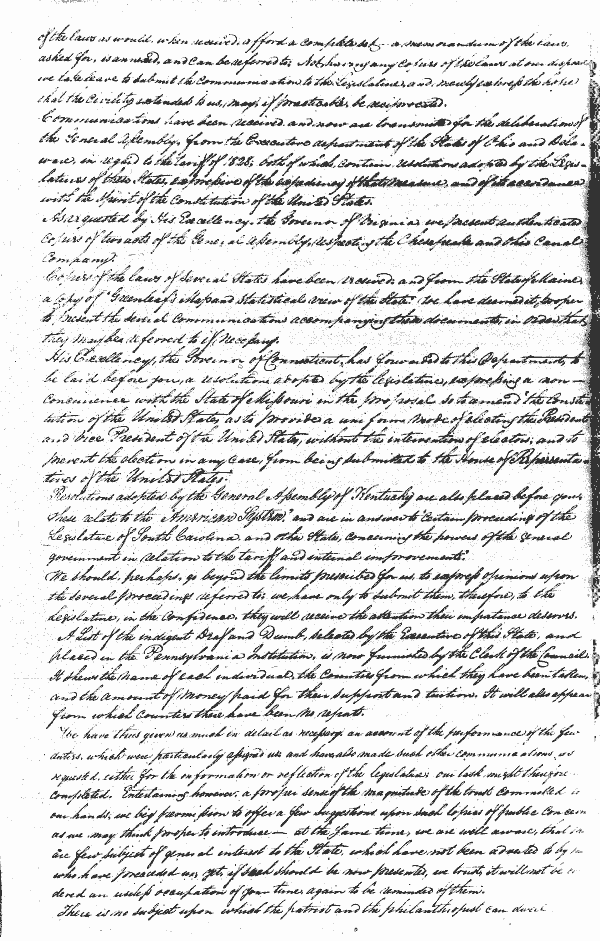 of the laws as would, when received, afford a complete set — a memorandum of the laws
asked for, is annexed, and can be referred to. Not having any copies of the laws at our disposal
we take leave to submit the communication to the Legislature, and, merely express the hope
that the civility extended to us, may, if practicable, be reciprocated.
Communications have been received, and now are transmitted for the deliberation of
the General Assembly, from the Executive department of the States of Ohio and Dela-
ware, in regard to the Tariff of 1828, both of which, contain resolutions adopted by the Legis-
latures of these States, expressive of the expediency of that measure, and of its accordance
with the Spirit of the Constitution of the United States.
As requested by His Excellency, the Governor of Virginia we present authenticated
copies of two acts of the General Assembly, respecting the Chesapeake and Ohio Canal
Company.
Copies of the laws of several States have been received; and from the State of Maine
a copy of "Greenleaf's map and Statistical view of the State." We have deemed it, proper
to present the communications accompanying these documents, in order that
they may be referred to if necessary.
His Excellency, the Governor of Connecticut, has forwarded to this Department, to
be laid before you, a resolution adopted by the legislature, expressing a non-
concurrence with the State of Missouri in the proposal so to amend "the Consti-
tution of the United States, as to provide a uniform mode of electing the President
and Vice President of the United States, without the intervention of electors; and to
prevent the election in any case, from being submitted to the House of Representa-
tives of the United States.
Resolutions adopted by the General Assembly of Kentucky are also placed before you.
These relate to the "American System," and are in answer to "Certain proceedings of the
Legislature of South Carolina, and other States, concerning the powers of the general
government in relation to the tariff and internal improvements."
We should, perhaps, go beyond the limits prescribed for us, to express opinions upon
the several proceedings referred to; we have only to submit them, therefore, to the
Legislature, in the confidence, they will receive the attention their importance deserves.
A List of the indigent Deaf and Dumb, selected by the Executive of this State, and
placed in the Pennsylvania Institution, is now furnished by the Clerk of the Council.
It shews the name of each individual, the Counties from which they have been taken,
and the amount of money paid for their support and tuition. It will also appear
from which Counties there have been no reports.
We have thus given as much in detail as necessary, an account of the performance of the few
duties, which were particularly assigned us and have also made such other communications, as
requested, either for the information or reflection of the legislature; our task might therefore
completed. Entertaining however, a proper sense of the magnitude of the trust committed to
our hands, we beg permission to offer a few suggestions upon such topics of public concern
as we may think proper to introduce — at the same time, we are well aware, that
are few subject of general interest to the State, which have not been adverted to by
who have preceded us; yet, if such should be now presented, we trust, it will not be
dered an useless occupation of your time, again to be reminded of them.
There is no subject upon which the patriot and the philanthropist can dwell